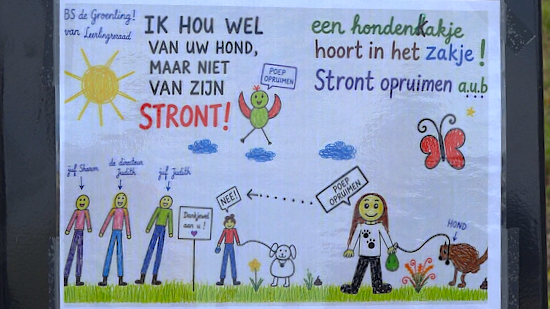 BS de Groenling!
van Leerlingenraad
IK HOU WEL
VAN UW HOND,
MAAR NIET
VAN ZIJN
STRONT!
POEP
OPRUIMEN
een hondenkakje
hoort in het zakje!
Stront opruimen a.u.b
juf Sharon
de directeur
Judith
juf Judith
Dankjewel
aan u!
NEE!
POEP
OPRUIMEN
HOND